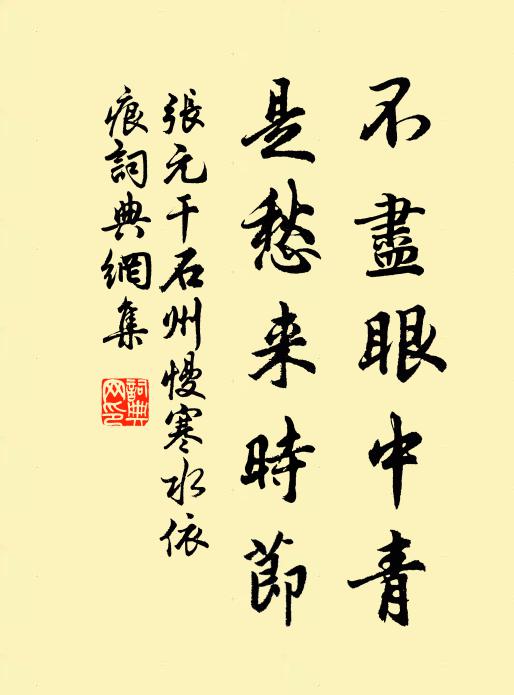 不盡眼中青
是愁来時節
張元干石州慢寒水依
痕詞典網集
詞典網印